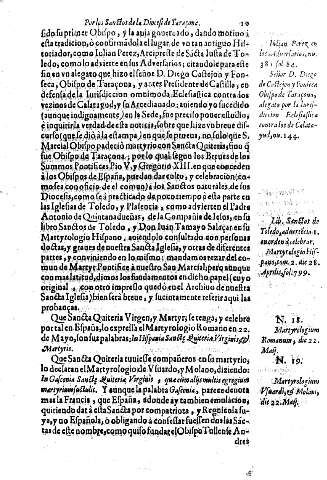 Por los Sanctos de la Diocesi de Taraçona. 19
sido su primer Obispo, y la auia gouernado, dando motiuo à
esta tradicion, ò confirmādola el lugar de vn tan antiguo His-
toriador, como Iulian Perez, Arcipreste de Sācta Iusta de To-
ledo, como lo aduierte en sus Aduersarios; citandole para este
fin en vn alegato que hizo el señor D. Diego Castejon y Fon-
seca, Obispo de Taraçona, y antes Presidente de Castilla, en
defensa de la Iurisdicion omnimoda Eclesiastica contra los
vezinos de Calatayud, y su Arcedianado; auiendo yo sucedido
(aunque indignamente) en la Sede, fue preciso poner estudio,
è inquirir la verdad de esta noticia, sobre que hize vn breue dis-
curso (que se diò à la estampa) en que se prueua, no solo que S.
Marcial Obispo padeciò martyrio con Sancta Quiteria, sino q̄
fue Obispo de Taraçona; por lo qual segun los Breues de los
Summos Pontifices Pio V. y Gregorio XIII. en que conceden
à los Obispos de España, puedan dar culto, y celebracion (en
Diocesis, como se à practicado de poco tiempo à esta parte en
las Iglesias de Toledo, y Plasencia, como aduierten el Padre
Antonio de Quintanadueñas, de la Compañia de Iesus, en su
libro Sanctos de Toledo, y Don Iuan Tamayo Salaçar en su
Martyrologio Hispano, auiendolo consultado con personas
doctas, y graues de nuestra Sancta Iglesia, y otras de diferentes
partes, y conviniendo en lo mismo; mandamos rezar del co-
mun de Martyr Pontifice à nuestro San Marcial; pero aunque
con mas latitud, dimos los fundamentos en dicho papel (cuyo
original, con otro impresso quedò en el Archiuo de nuestra
Sancta Iglesia) bien serà breue, y sucintamente referir aqui las
probanças.
Que Sancta Quiteria Virgen, y Martyr, se tenga, y celebre
por tal en España, lo expressa el Martyrologio Romano en 22.
de Mayo, son sus palabras: In Hispania Sanctæ Quiteriæ Virginis, &
Martyris.
Que Sancta Quiteria tuuiesse compañeros en su martyrio,
lo declaran el Martyrologio de Vsuardo, y Molano, diziendo:
In Gasconia Sanctæ Quiteriæ Virginis, quæ cum alijs multis egregium
martyrium sustulit. Y aunque la palabra Gasconia, parece denota
mas la Francia, que España, adonde ay tambien emulacion,
queriendo dar à esta Sancta por compatriota, y Regnicola su-
ya, y no Española, ò obligando à confessar fuessen dos las Sāc-
tas de este nombre, como quiso fundar el Obispo Tullense An-
dres
Iulian Perez, en
los Aduersarios, nu.
38. fol. 82.
Señor D. Diego
de Castejon y Fonseca
Obispo de Taraçona,
alegato por la Iuris-
diccion Eclesiastica
contra los de Calata-
yud, nu. 144.
Lib. Sanctos de
Toledo, aduertēcia 1.
Martyrologio His-
pano, tom. 2. die 28.
Aprilis, fol. 799.
N. 18.
Martyrologium
Romanum, die 22.
Maij.
N. 19.
Martyrologium
Vsuardi, & Molani,
die 22. Maij.